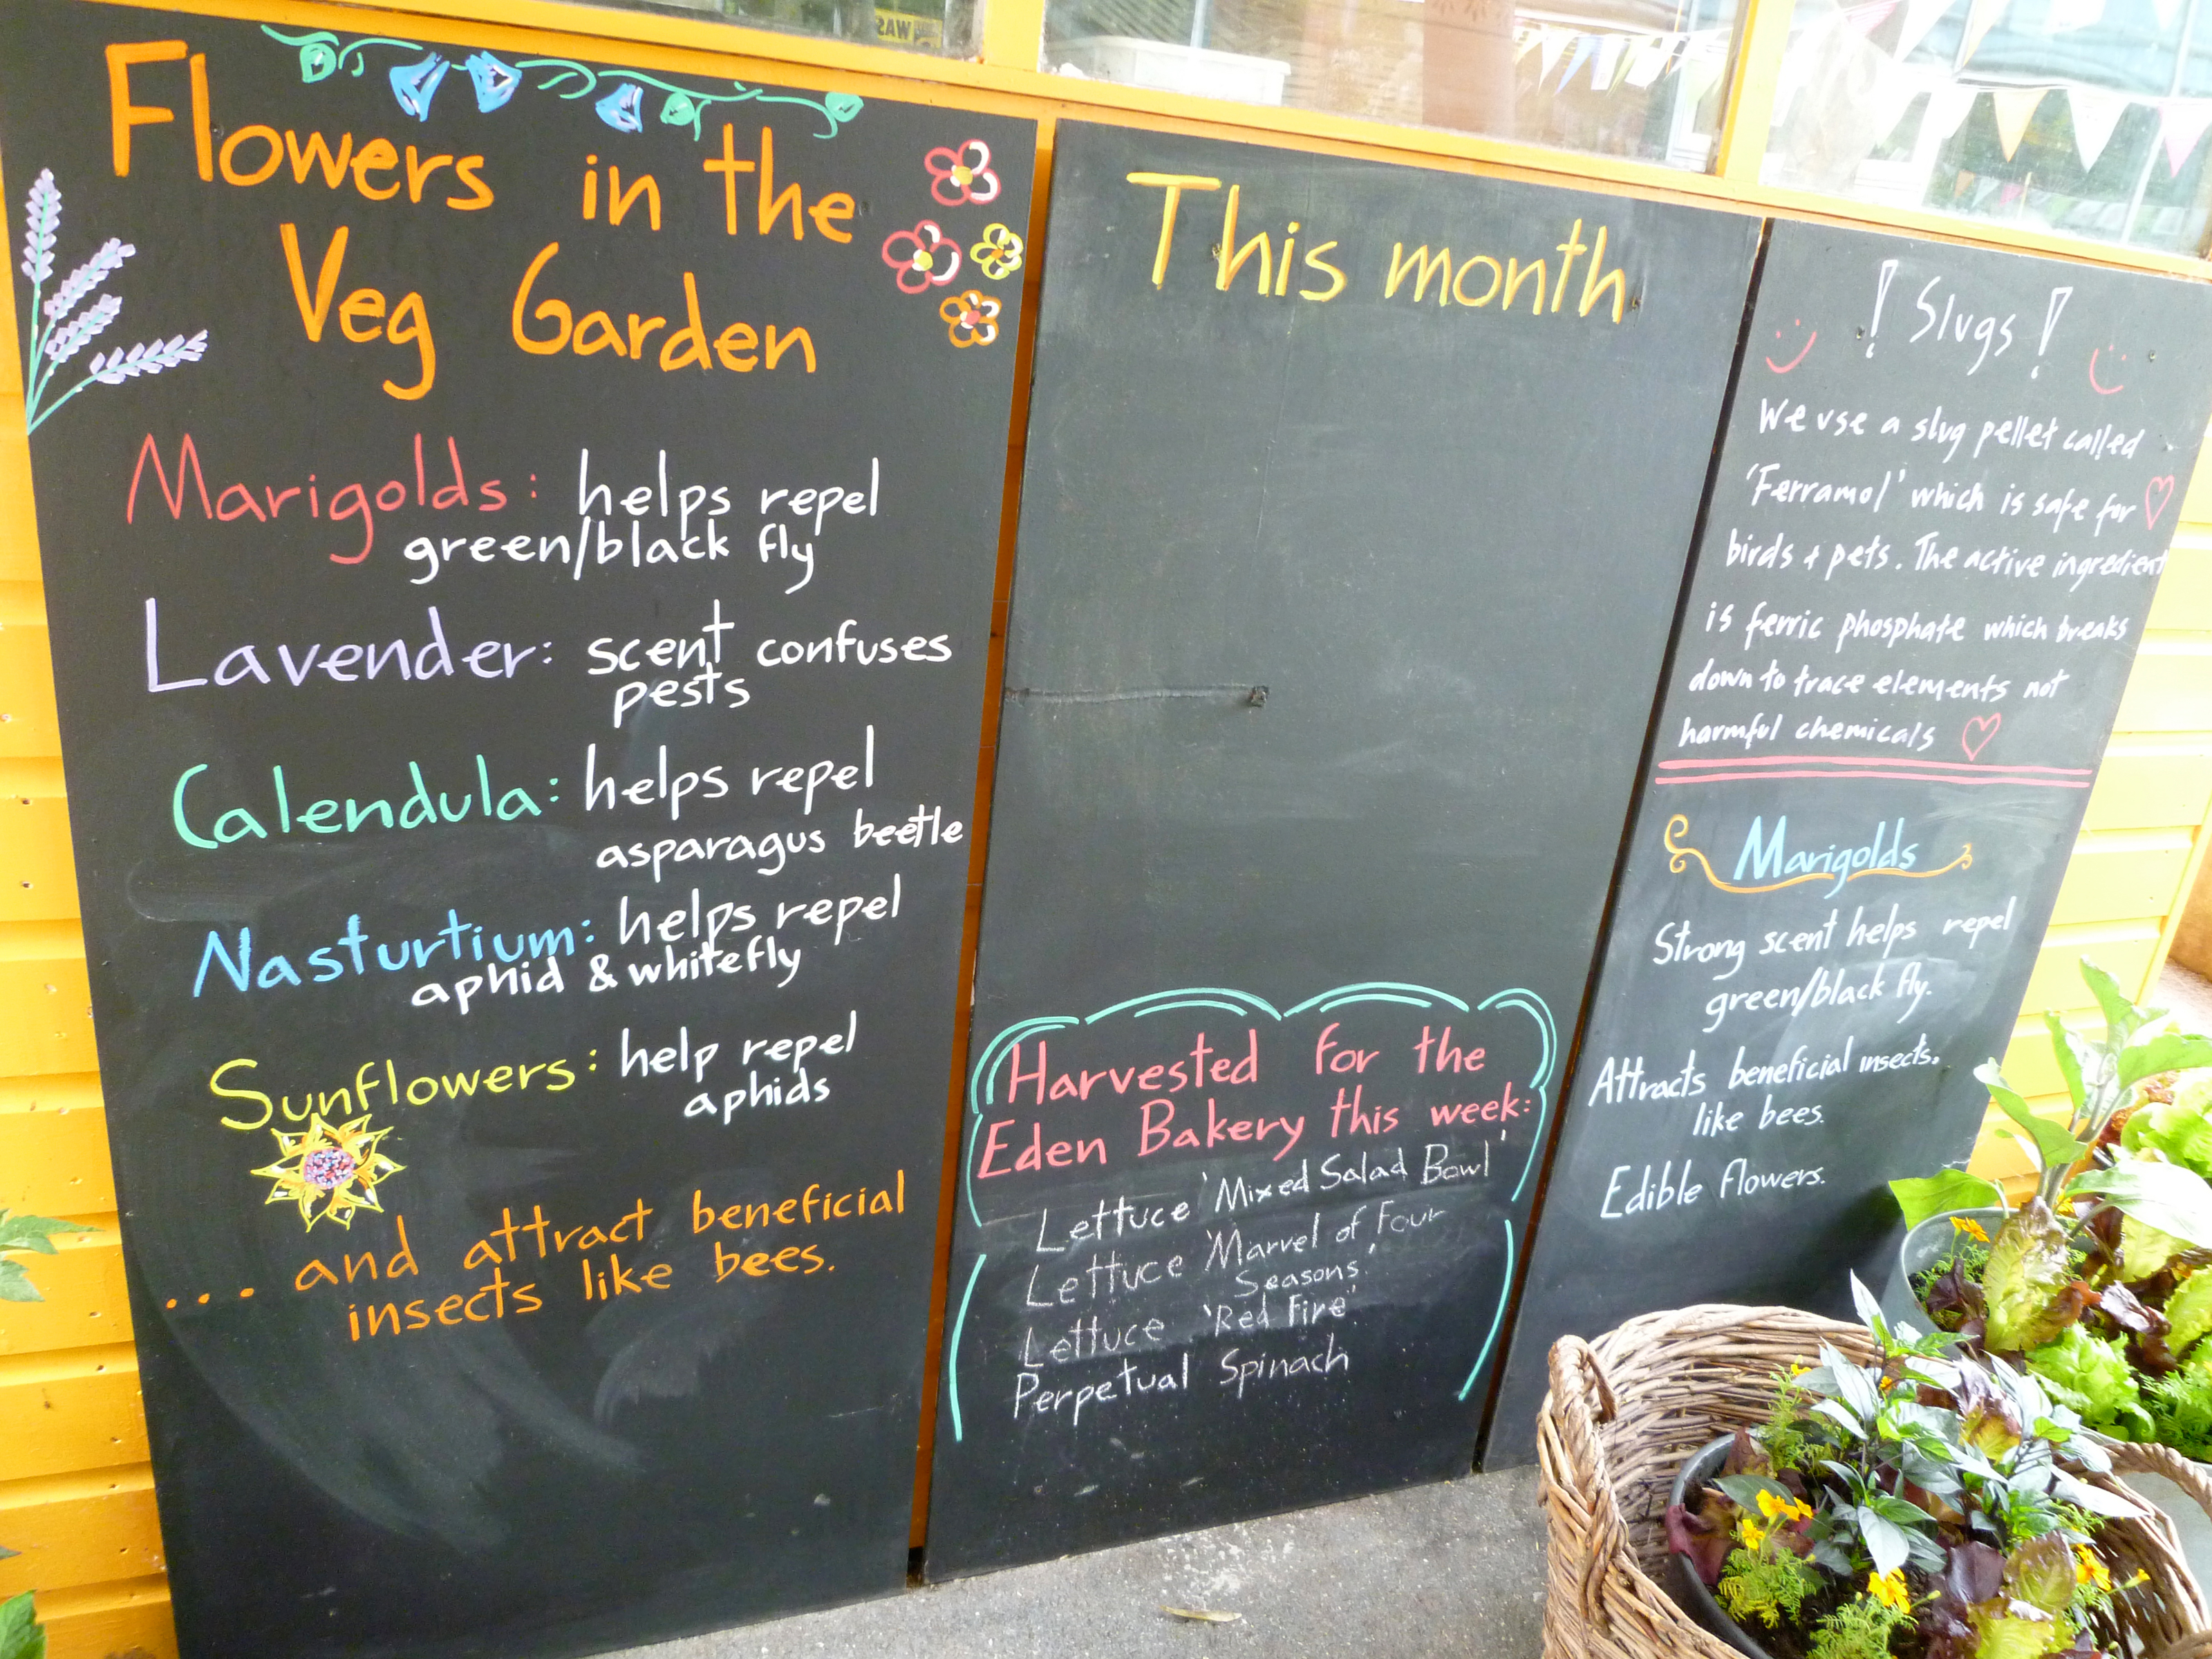 Flowers in the
Veg Garden
Marigolds: helps repel
green/black fly
Lavender: scent confuses
pests
Calendula: helps repel
asparagus beetle
Nasturtium: helps repel
aphid & whitefly
Sunflowers: help repel
aphids
... and attract beneficial
insects like bees.
This month
Harvested for the
Eden Bakery this week:
Lettuce 'Mixed Salad Bowl'
Lettuce 'Marvel of Four
Seasons.'
Lettuce 'Red Fire'.
Perpetual Spinach
! Slugs !
We use a slug pellet called
'Ferramol' which is safe for
birds + pets. The active ingredient
is ferric phosphate which breaks
down to trace elements not
harmful chemicals
Marigolds
Strong scent helps repel
green/black fly.
Attracts beneficial insects.
like bees.
Edible flowers.